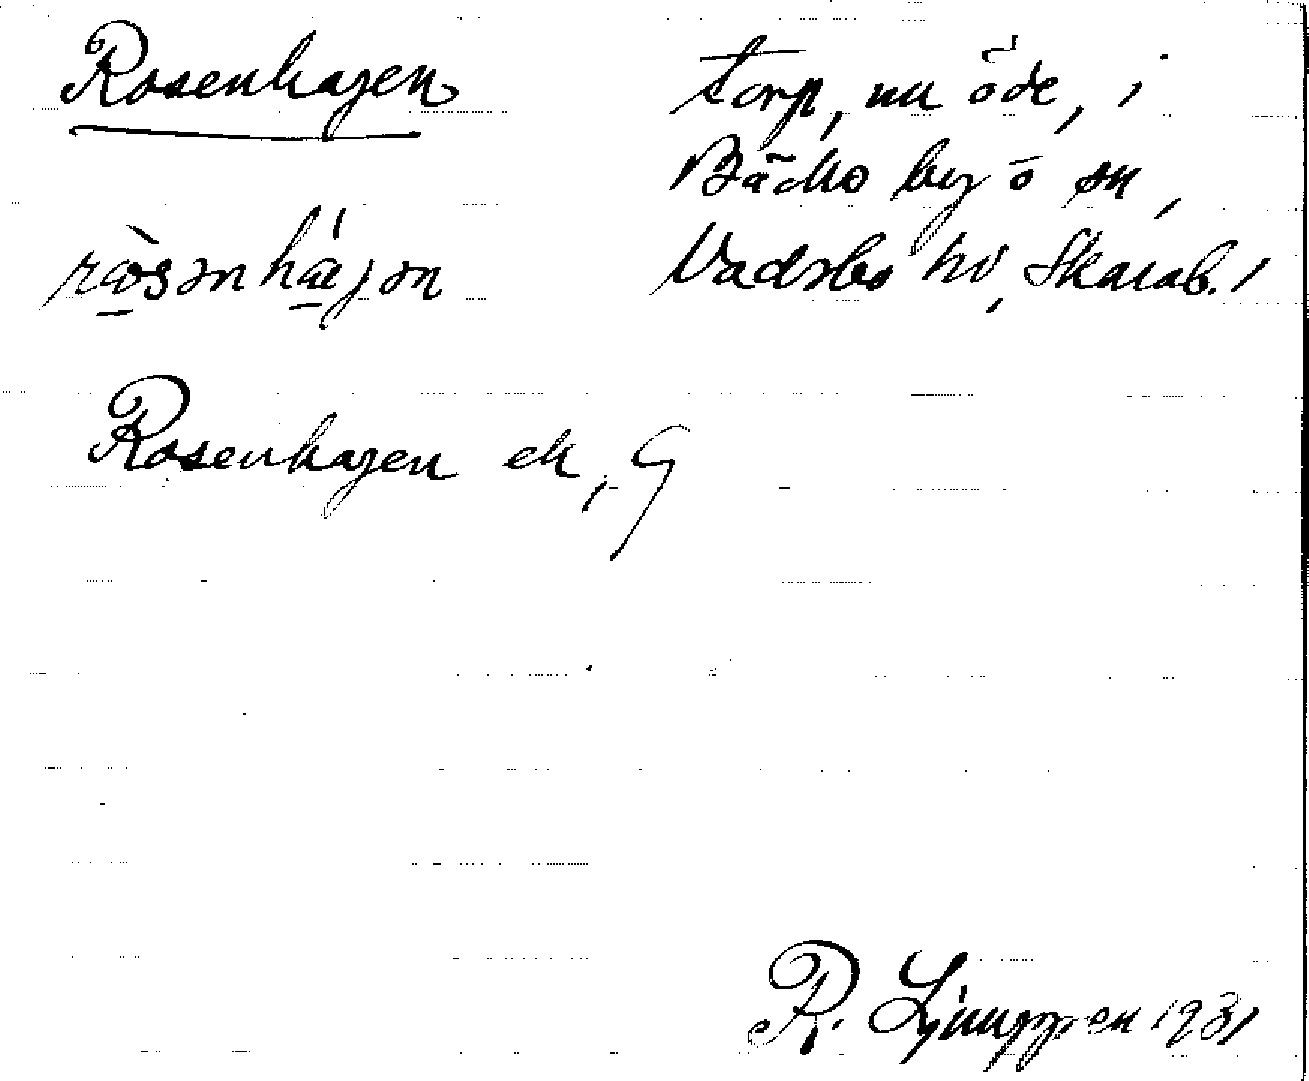 Rosenhagen
torp, nu öde, i
Bäcks by o sn,
Vadsbo hd, Skarab. l
Rosenhagen ek, G
R. Ljunggren 1931